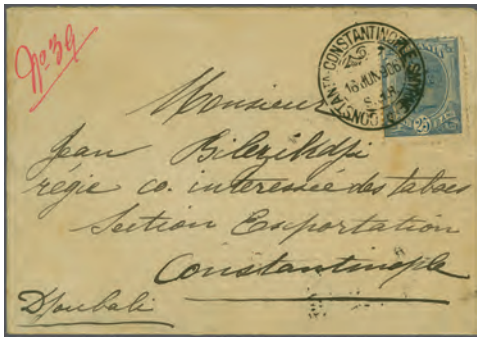 No 39
CONSTANTA-CONSTANTINOPLE
16 JUN 906
25
Monsieur
Jean Bilezikdji
régie co. interessée des tabacs
Section Exportation
Constantinople
Djoubali